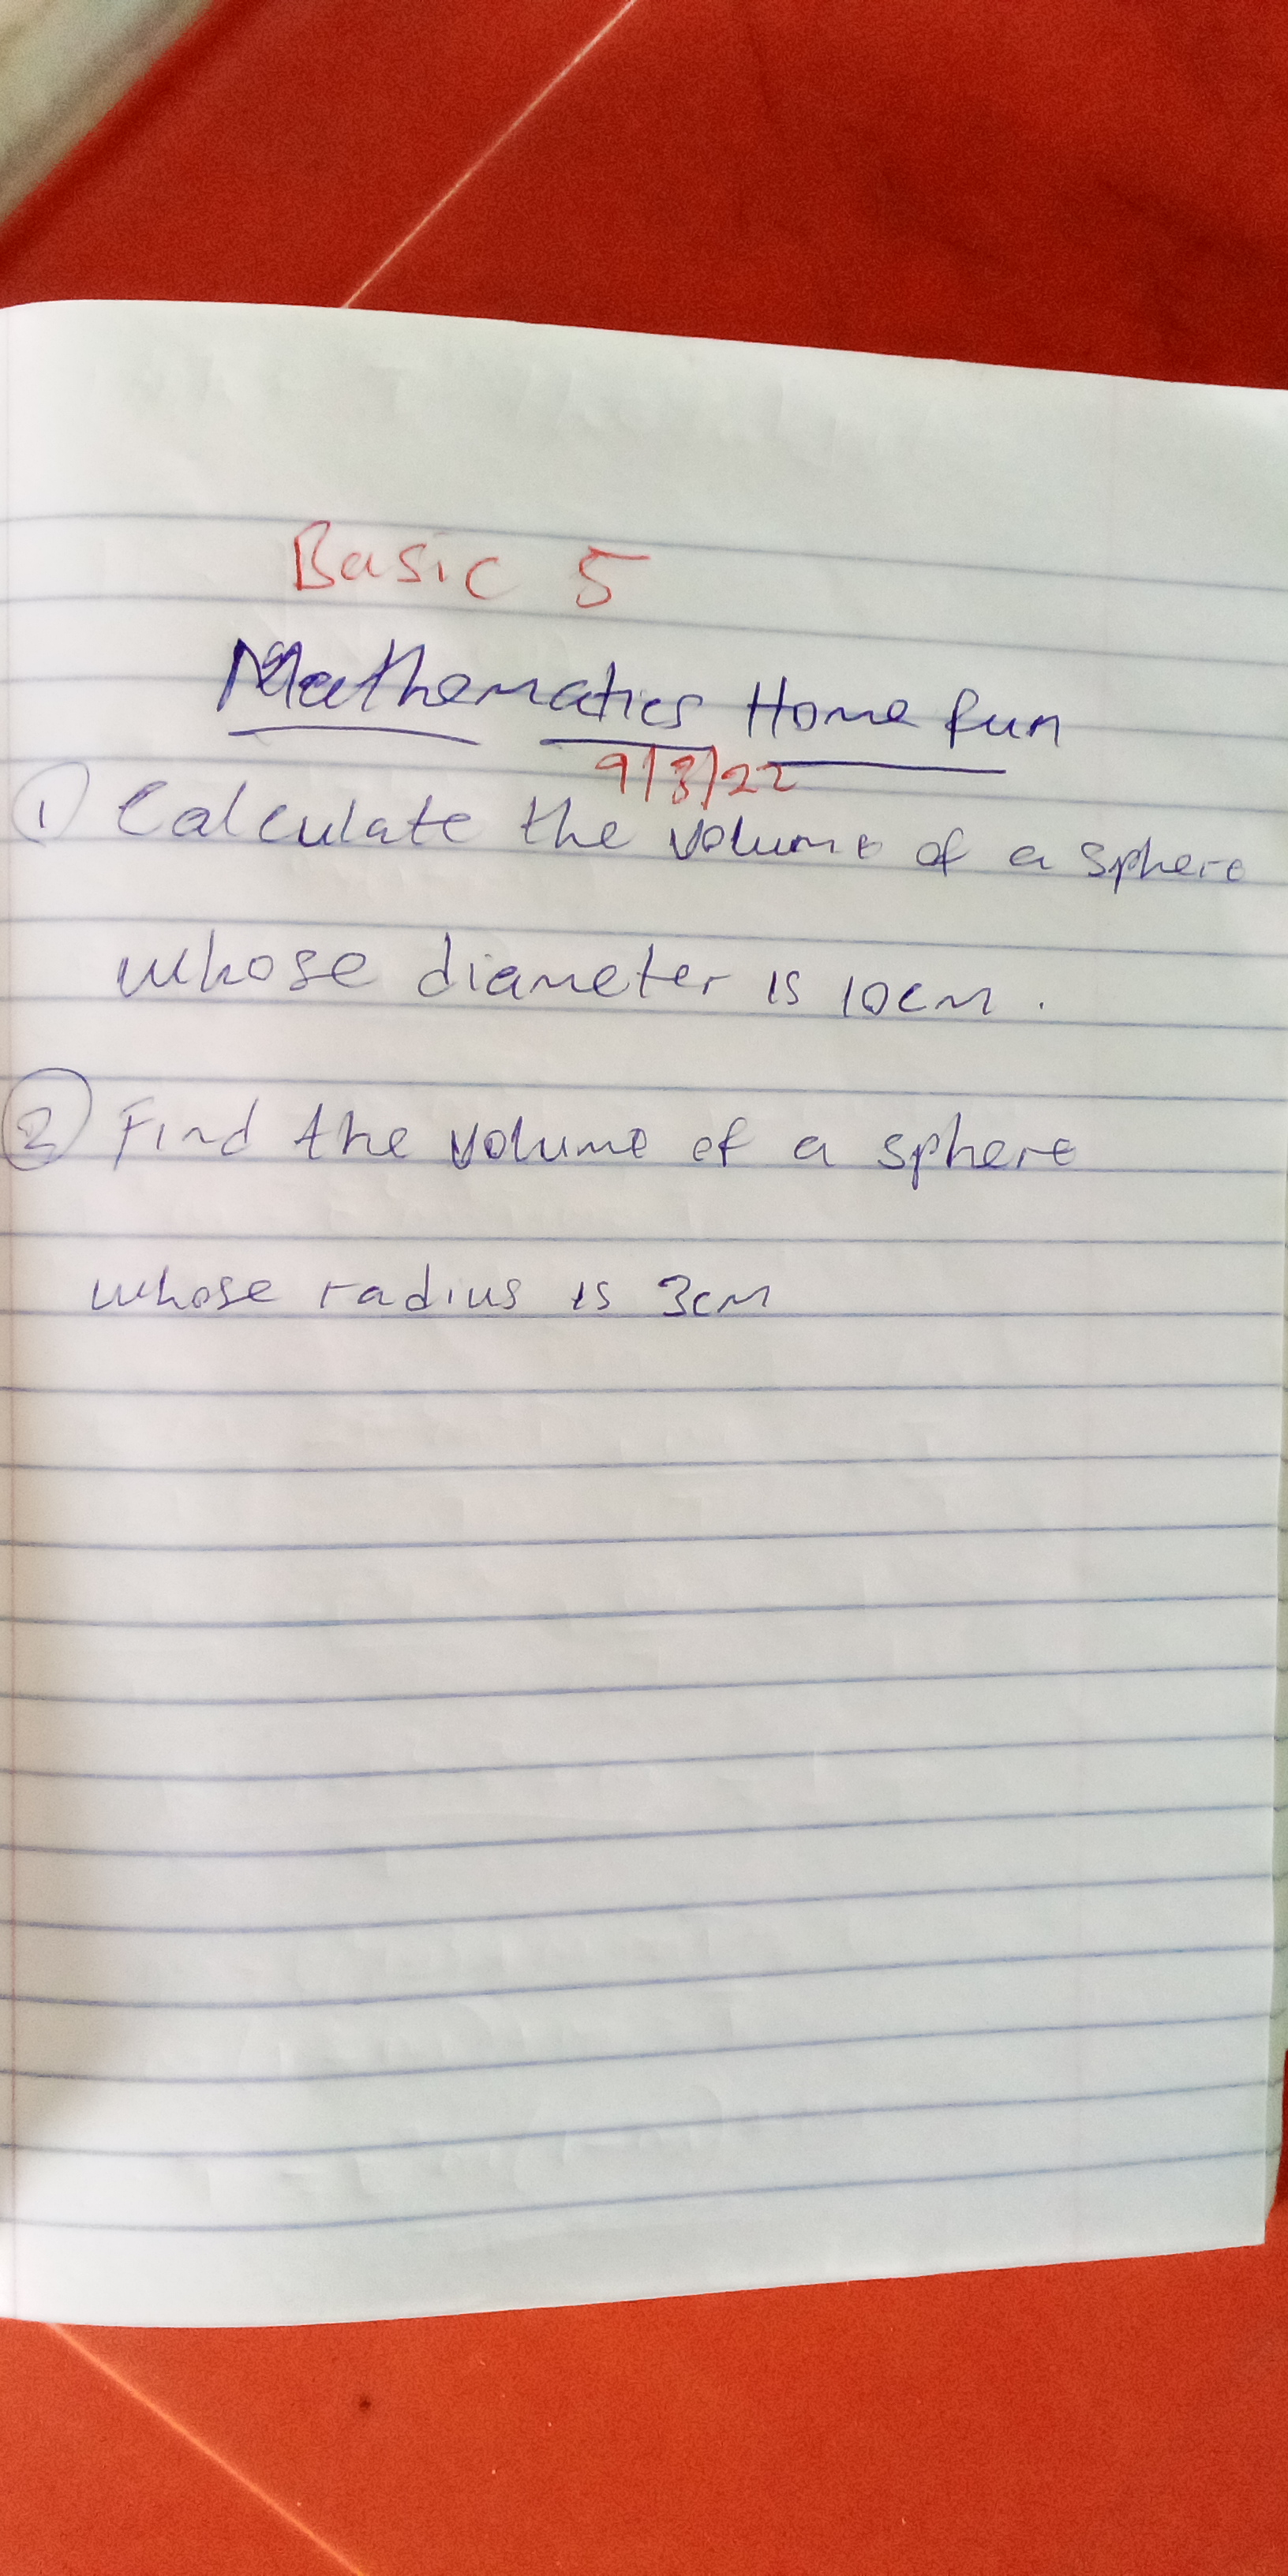 Basic 5
Mathematics Home fun
9/3/22
① Calculate the volume of a sphere
whose diameter is 10cm.
② Find the volume of a sphere
whose radius is 3cm